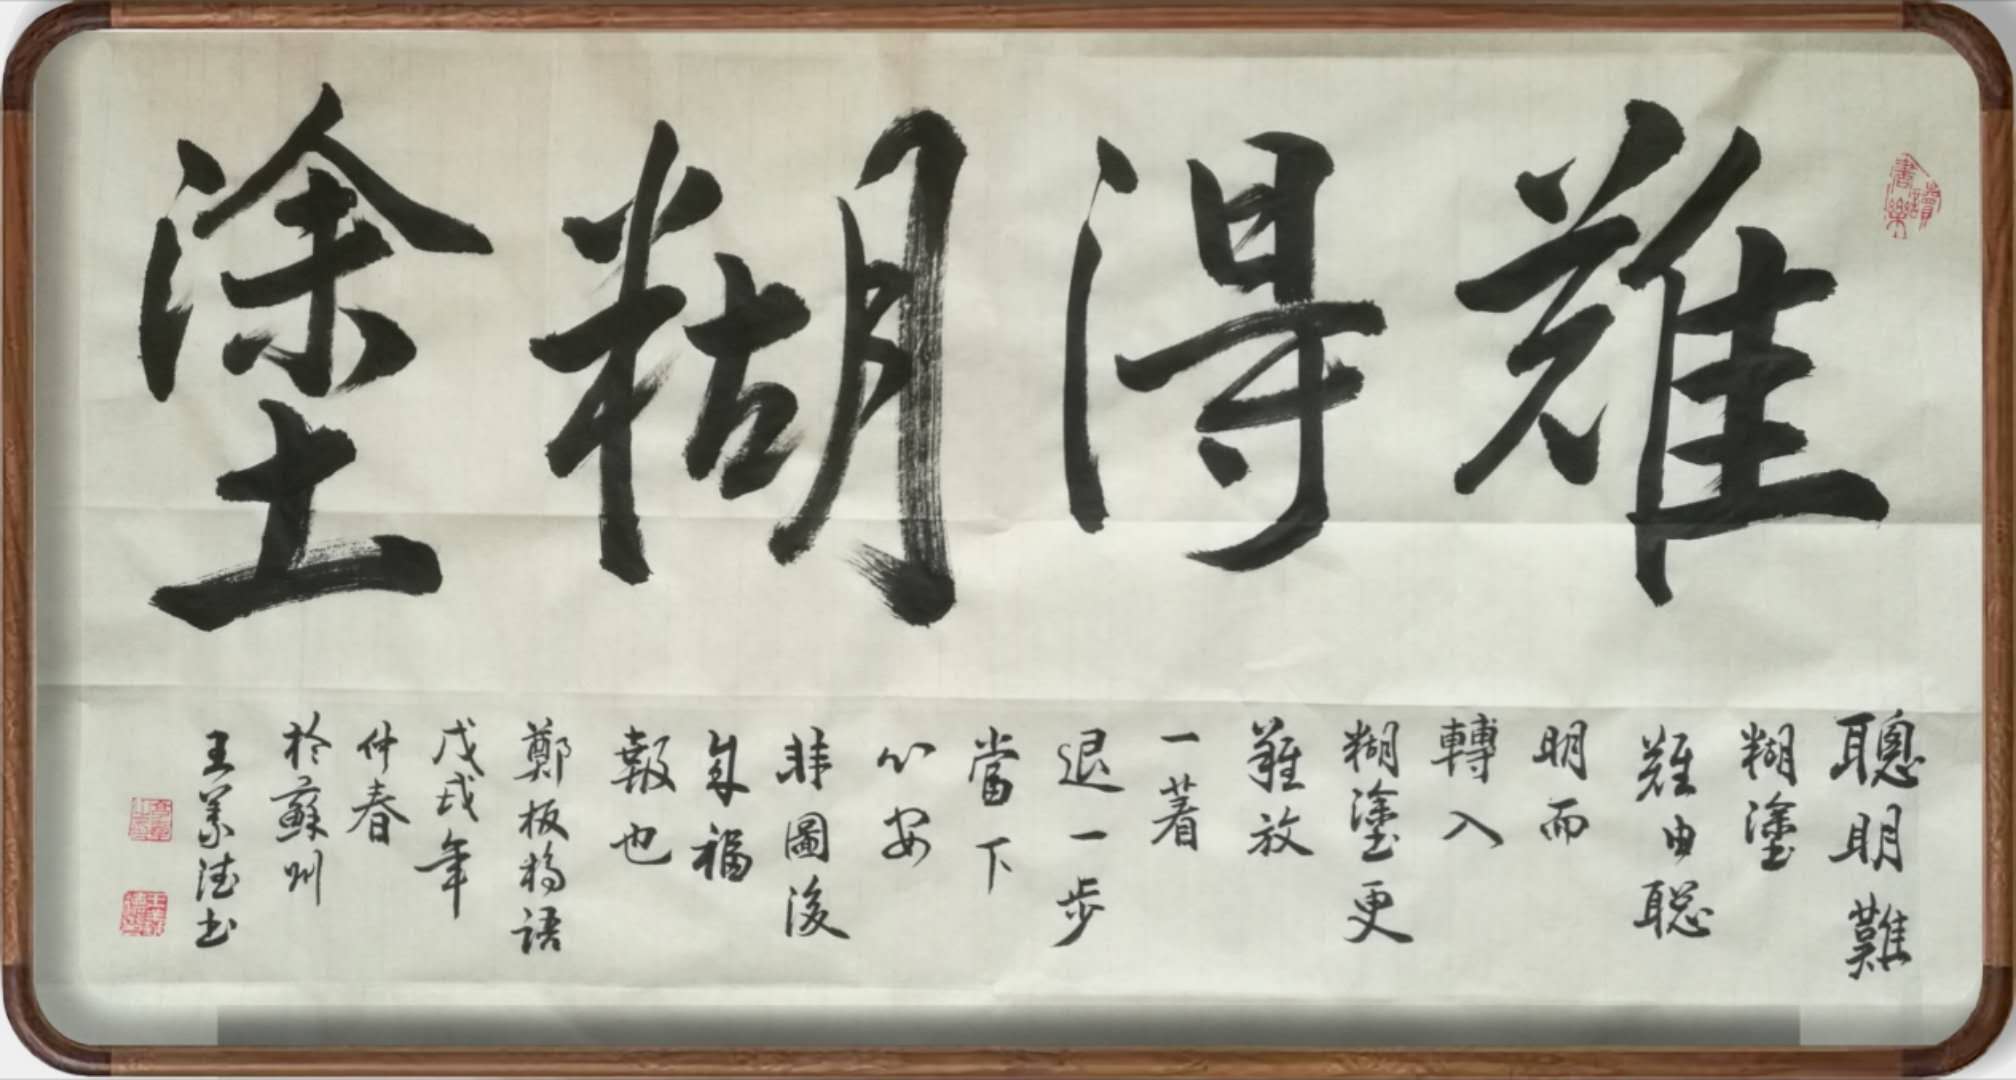 難得糊塗
聰明難
糊塗
難由聪
明而
轉入
糊塗更
難放
一著
退一步
當下
心安
非圖後
來福
報也
鄭板橋語
戊戌年
仲春
於蘇州
王義德书